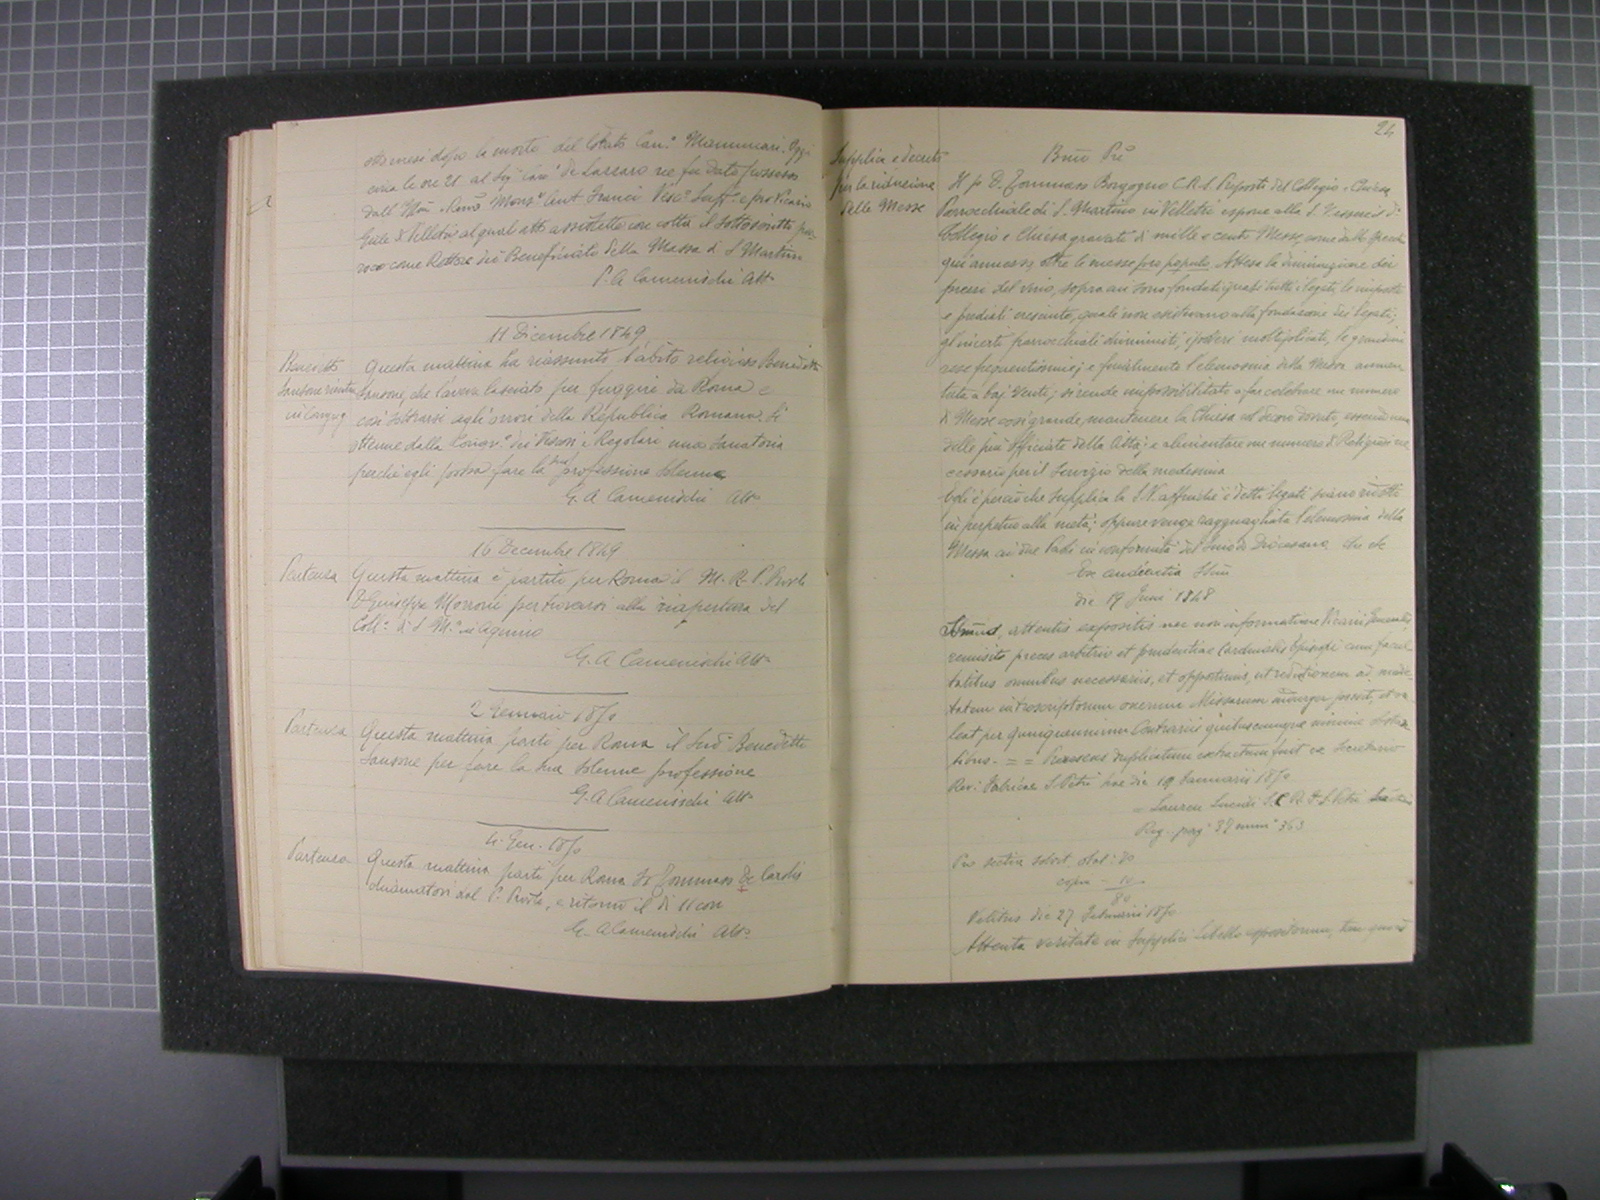 otto mesi dopo la morte del Can.º Mammucari. Oggi
circa le ore 21 al Sig. Can.º De Lazzaro ne fu dato possesso
dall' Revmo Mons.r Ant. Franci Vesc.º Suff.º e pro Vicario
Gnle di Velletri al qual atto assistette con cotta il sottoscritto par-
roco come Rettore dei Beneficiato della Massa di S. Martino
P. A Camenischi Att.º
11 Dicembre 1849
Benedetto
Sansone
in Cong.
Questa mattina ha riassunto l'abito religioso Benedetto
Sansone, che l'aveva lasciato per fuggire da Roma e
così sottrarsi agli orrori della Repubblica Romana. Si
ottenne dalla Congr.e dei Vescovi e Regolari una Sanatoria
perchè egli possa fare la sua professione solenne
G. A Camenischi Att.º
16 Decembre 1849
Partenza
Questa mattina è partito per Roma il M. R. P. Prov.le
D. Giuseppe Morroni per trovarsi alla riapertura del
Coll.º di S. M.ª in Aquiro
G. A Camenischi Att.º
2 Gennaio 1850
Partenza
Questa mattina partì per Roma il Sud.º Benedetto
Sansone per fare la sua solenne professione
G. A Camenischi Att.º
4. Gen. 1850
Partenza
Questa mattina partì per Roma D. Tommaso De Carolis
chiamatovi dal P. Prov.le, e ritornò il dì 11 con
G. A Camenischi Att.º
24
Supplica e decreto
per la riduzione
delle Messe
Bmo Pre
Il p. D. Tommaso Borgogno C.R.S. Preposto del Collegio e Chiesa
Parrocchiale di S. Martino in Velletri espone alla S. V. essere il di
Collegio e Chiesa gravati di mille e cento Messe come dallo specchio
qui annesso, oltre le messe pro populo. Attesa la diminuzione dei
prezzi del vino, sopra cui sono fondati quasi tutti i legati, le imposte
e prediali cresciute, quali non esistevano alla fondazione dei legati;
gl'incerti parrocchiali diminuiti, i poveri moltiplicati, le grandini
assai frequentissime; e finalmente l'elemosina della Messa aumen-
tata a baj. venti; si rende impossibilitato a far celebrare un numero
di Messe così grande, mantenere la Chiesa col decoro dovuto, essendo una
delle più officiate della Città; e alimentare un numero di Religiosi ne-
cessario per il servizio della medesima
Egli è perciò che supplica la S. V. affinchè i detti legati siano ridotti
in perpetuo alla metà; oppure venga ragguagliata l'elemosina della
Messa ai due Paoli in conformità del Sinodo Diocesano. Che etc
Ex audientia SSmi
die 19 Junii 1848
SSmus, attentis expositis nec non informatione Vicarii Generalis,
remisit preces arbitrio et prudentiae Cardinalis Episcopi cum facul-
tatibus omnibus necessariis, et opportunis, ut reductionem ad medie-
tatem introscriptorum onerum Missarum indulgere possit, et va-
leat per quinquennium Contrariis quibuscumque minime obstan-
tibus. = = Praesens duplicatum extractum fuit ex Secretario
Rev: Fabricae S. Petri hac die 19 Januarii 1850
Reg. pag. 37 num. 363
copia - 10
80
die 27 Februarii 1850
Attenta veritate in supplici libello expositorum, tum